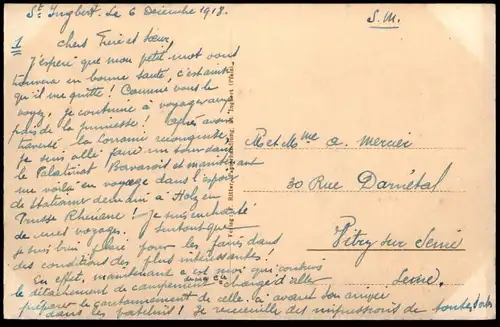 St Ingbert. Le 6 Décembre 1918.
S.M.
1
Chers Frère et Sœur,
J'espère que mon petit mot vous
trouvera en bonne santé, c'est ainsi
qu'il me quitte! Comme vous le
voyez, je continue à voyager aux
pays de la
! Après avoir
traversé la Lorraine reconquise,
je suis allé faire un tour dans
le Palatinat Bavarois et maintenant
me voilà en voyage dans l'espoir
de stationner demain à
en
Prusse Rhénane! Je suis enchanté
de mes voyages. Surtout que
je suis bien placé pour les faire dans
des conditions des plus intéressantes!
En effet, maintenant c'est moi qui conduis
le détachement de campement
chargé d'aller
préparer le cantonnement de celle-ci avant son arrivée
dans les patelins! Je recueille des impressions de toutes
Mr et Mme A. Mercier
30 Rue Darnétal
Vitry sur Seine
Seine.